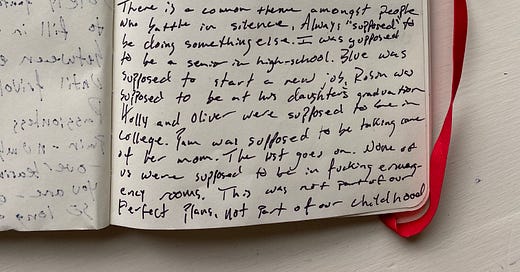 to fill in
Between
Until
Passionless
Pain -
over
you are
There is a common theme amongst people
who battle in silence. Always "supposed" to
be doing something else. I was supposed
to be a senior in high-school. Blue was
supposed to start a new job. Robin was
supposed to be at his daughter's graduation
Holly and Oliver were supposed to be in
college. Pam was supposed to be taking care
of her mom. The list goes on. None of
us were supposed to be in fucking emerg-
ency rooms. This was not part of our
Perfect Plans, not part of our childhood